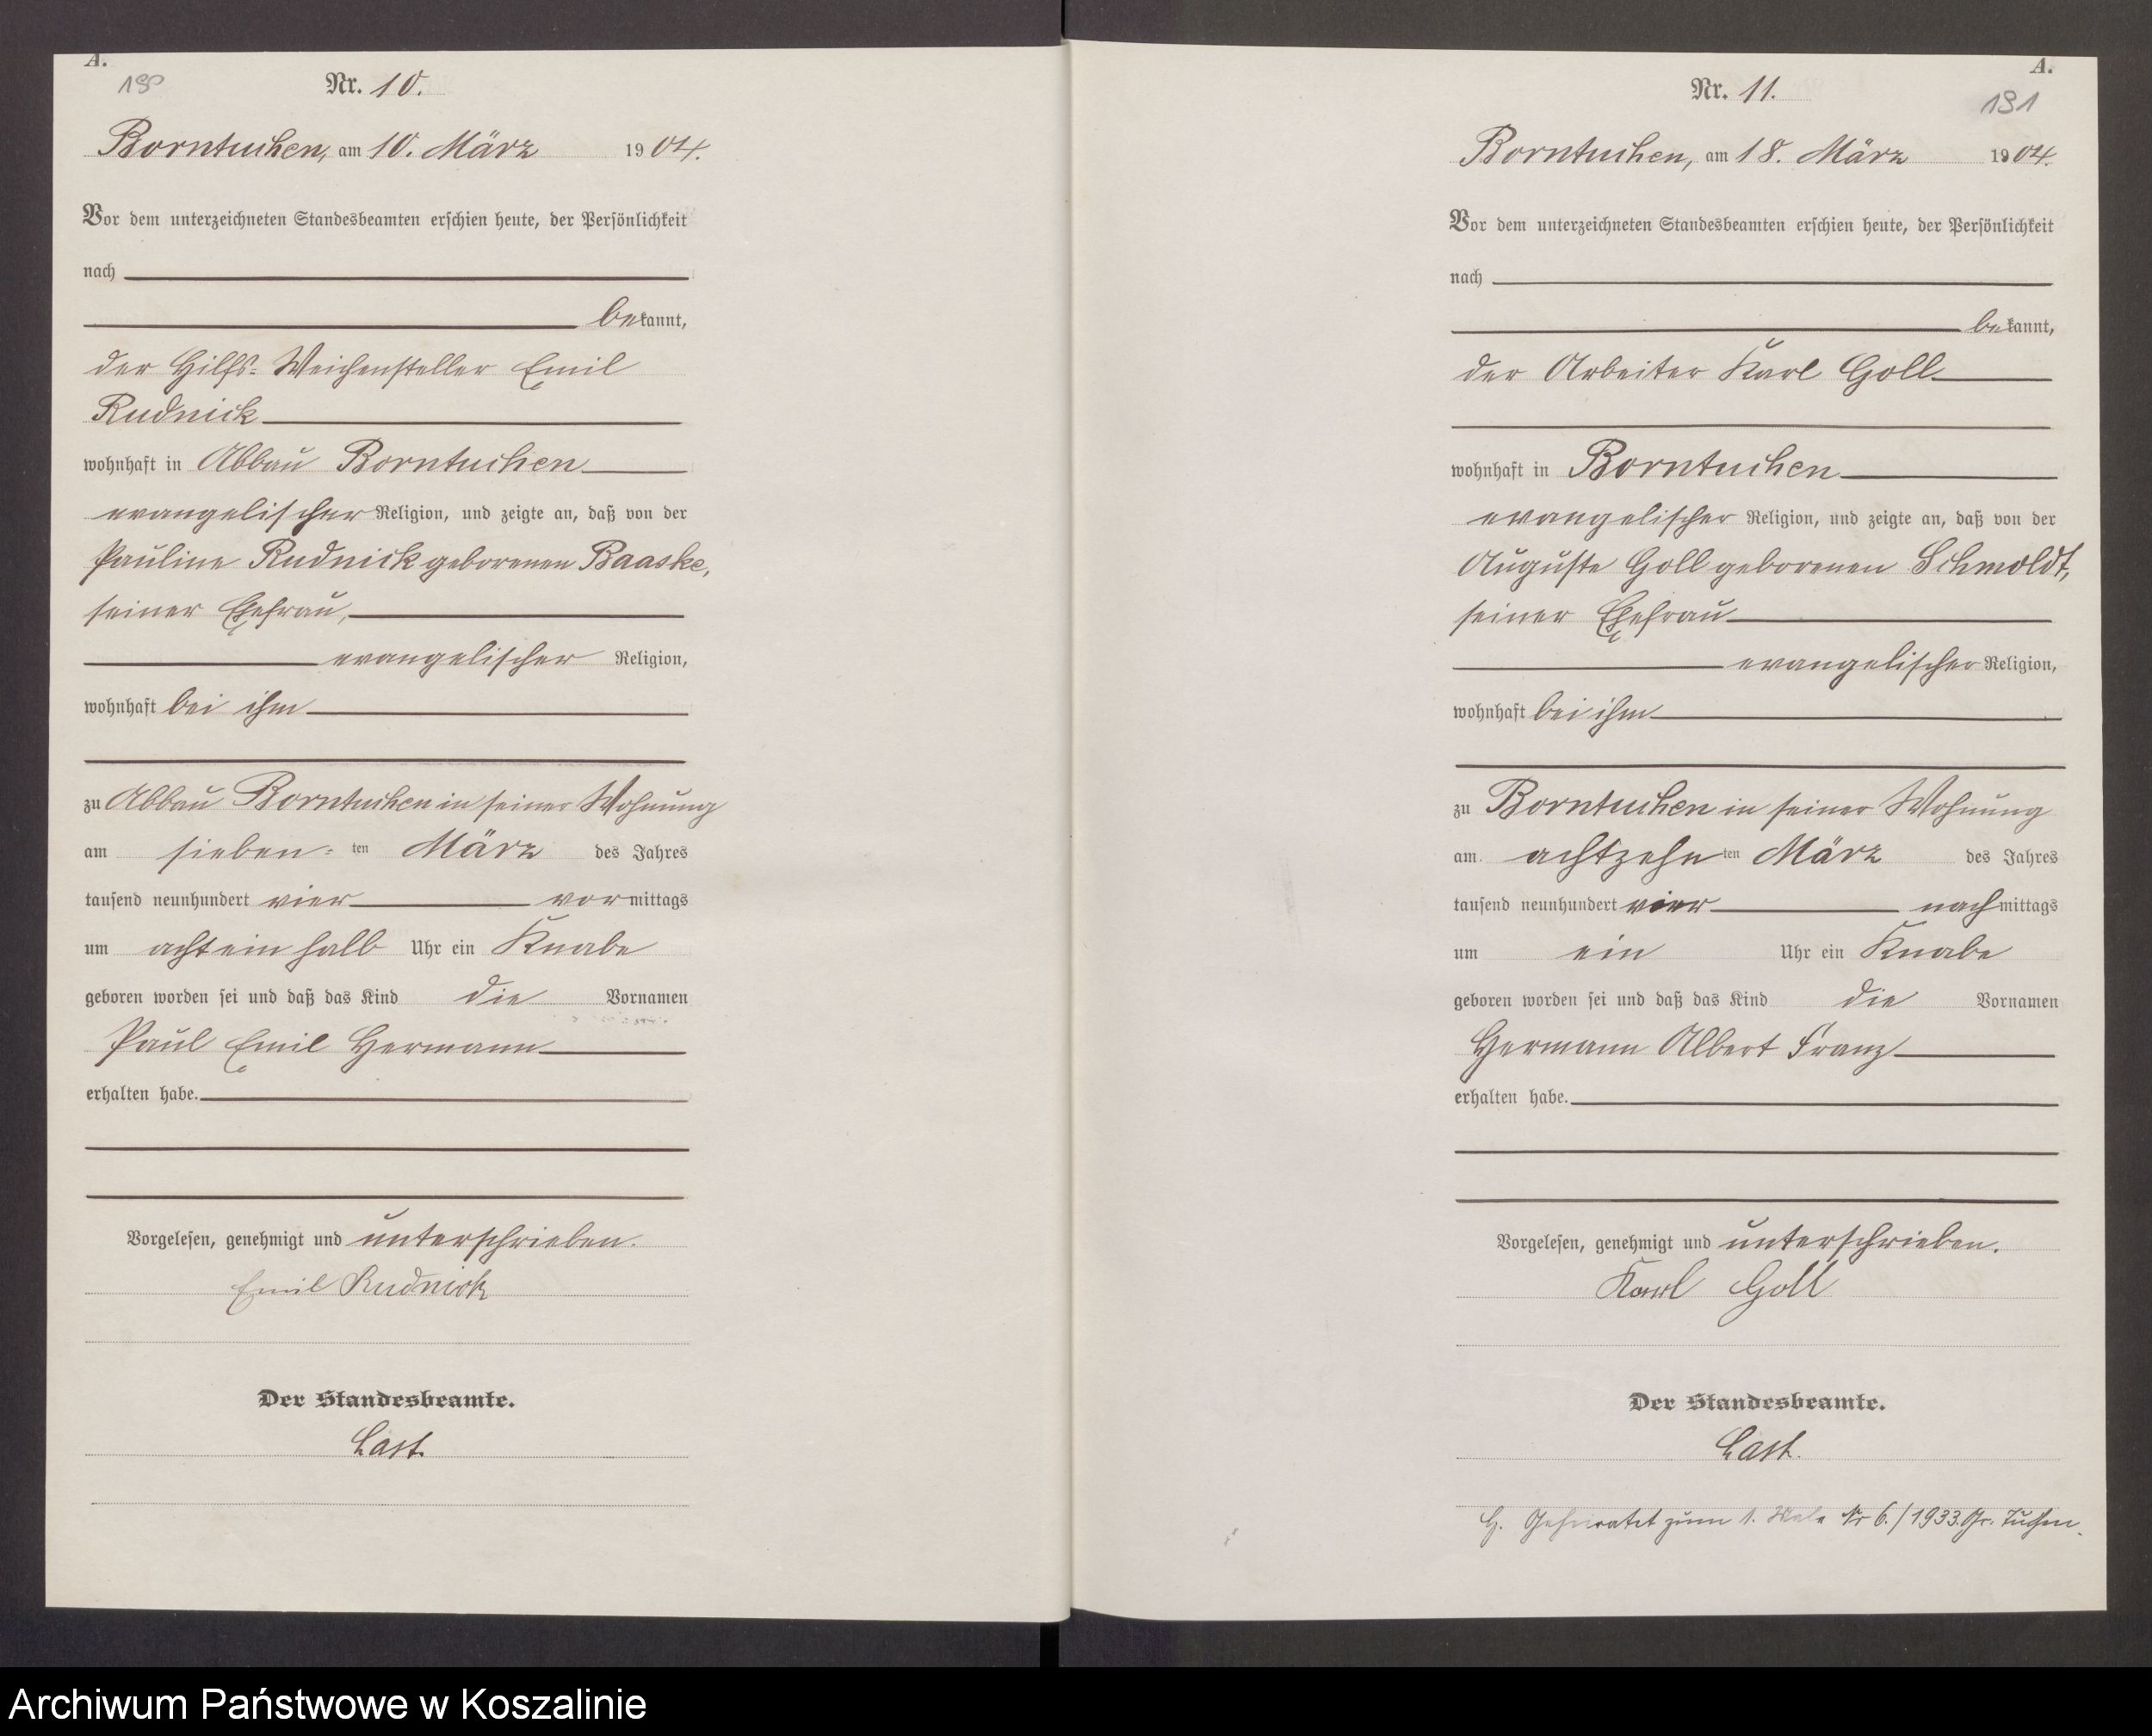 A.
190
Nr. 10.
Borntuchen, am 10. März 1904.
Vor dem unterzeichneten Standesbeamten erschien heute, der Persönlichkeit
nach
bekannt,
der Hilfs-Weichensteller Emil
Rudnick
wohnhaft in Abbau Borntuchen
evangelischer Religion, und zeigte an, daß von der
Pauline Rudnick geborenen Baaske,
seiner Ehefrau,
evangelischer Religion,
wohnhaft bei ihm
zu Abbau Borntuchen in seiner Wohnung
am sieben-ten März des Jahres
tausend neunhundert vier vormittags
um achteinhalb Uhr ein Knabe
geboren worden sei und daß das Kind die Vornamen
Paul Emil Hermann
erhalten habe.
Vorgelesen, genehmigt und unterschrieben.
Emil Rudnick
Der Standesbeamte.
Last.
A.
Nr. 11.
191
Borntuchen, am 18. März 1904.
Vor dem unterzeichneten Standesbeamten erschien heute, der Persönlichkeit
nach
bekannt,
der Arbeiter Karl Goll
wohnhaft in Borntuchen
evangelischer Religion, und zeigte an, daß von der
Auguste Goll geborenen Schmoldt,
seiner Ehefrau
evangelischer Religion,
wohnhaft bei ihm
zu Borntuchen in seiner Wohnung
am achtzehnten März des Jahres
tausend neunhundert vier nachmittags
um ein Uhr ein Knabe
geboren worden sei und daß das Kind die Vornamen
Hermann Albert Franz
erhalten habe.
Vorgelesen, genehmigt und unterschrieben.
Karl Goll
Der Standesbeamte.
Last.
H. Geheiratet zum 1. Male Nr 6./1933. Gr. Tuchen.
Archiwum Państwowe w Koszalinie